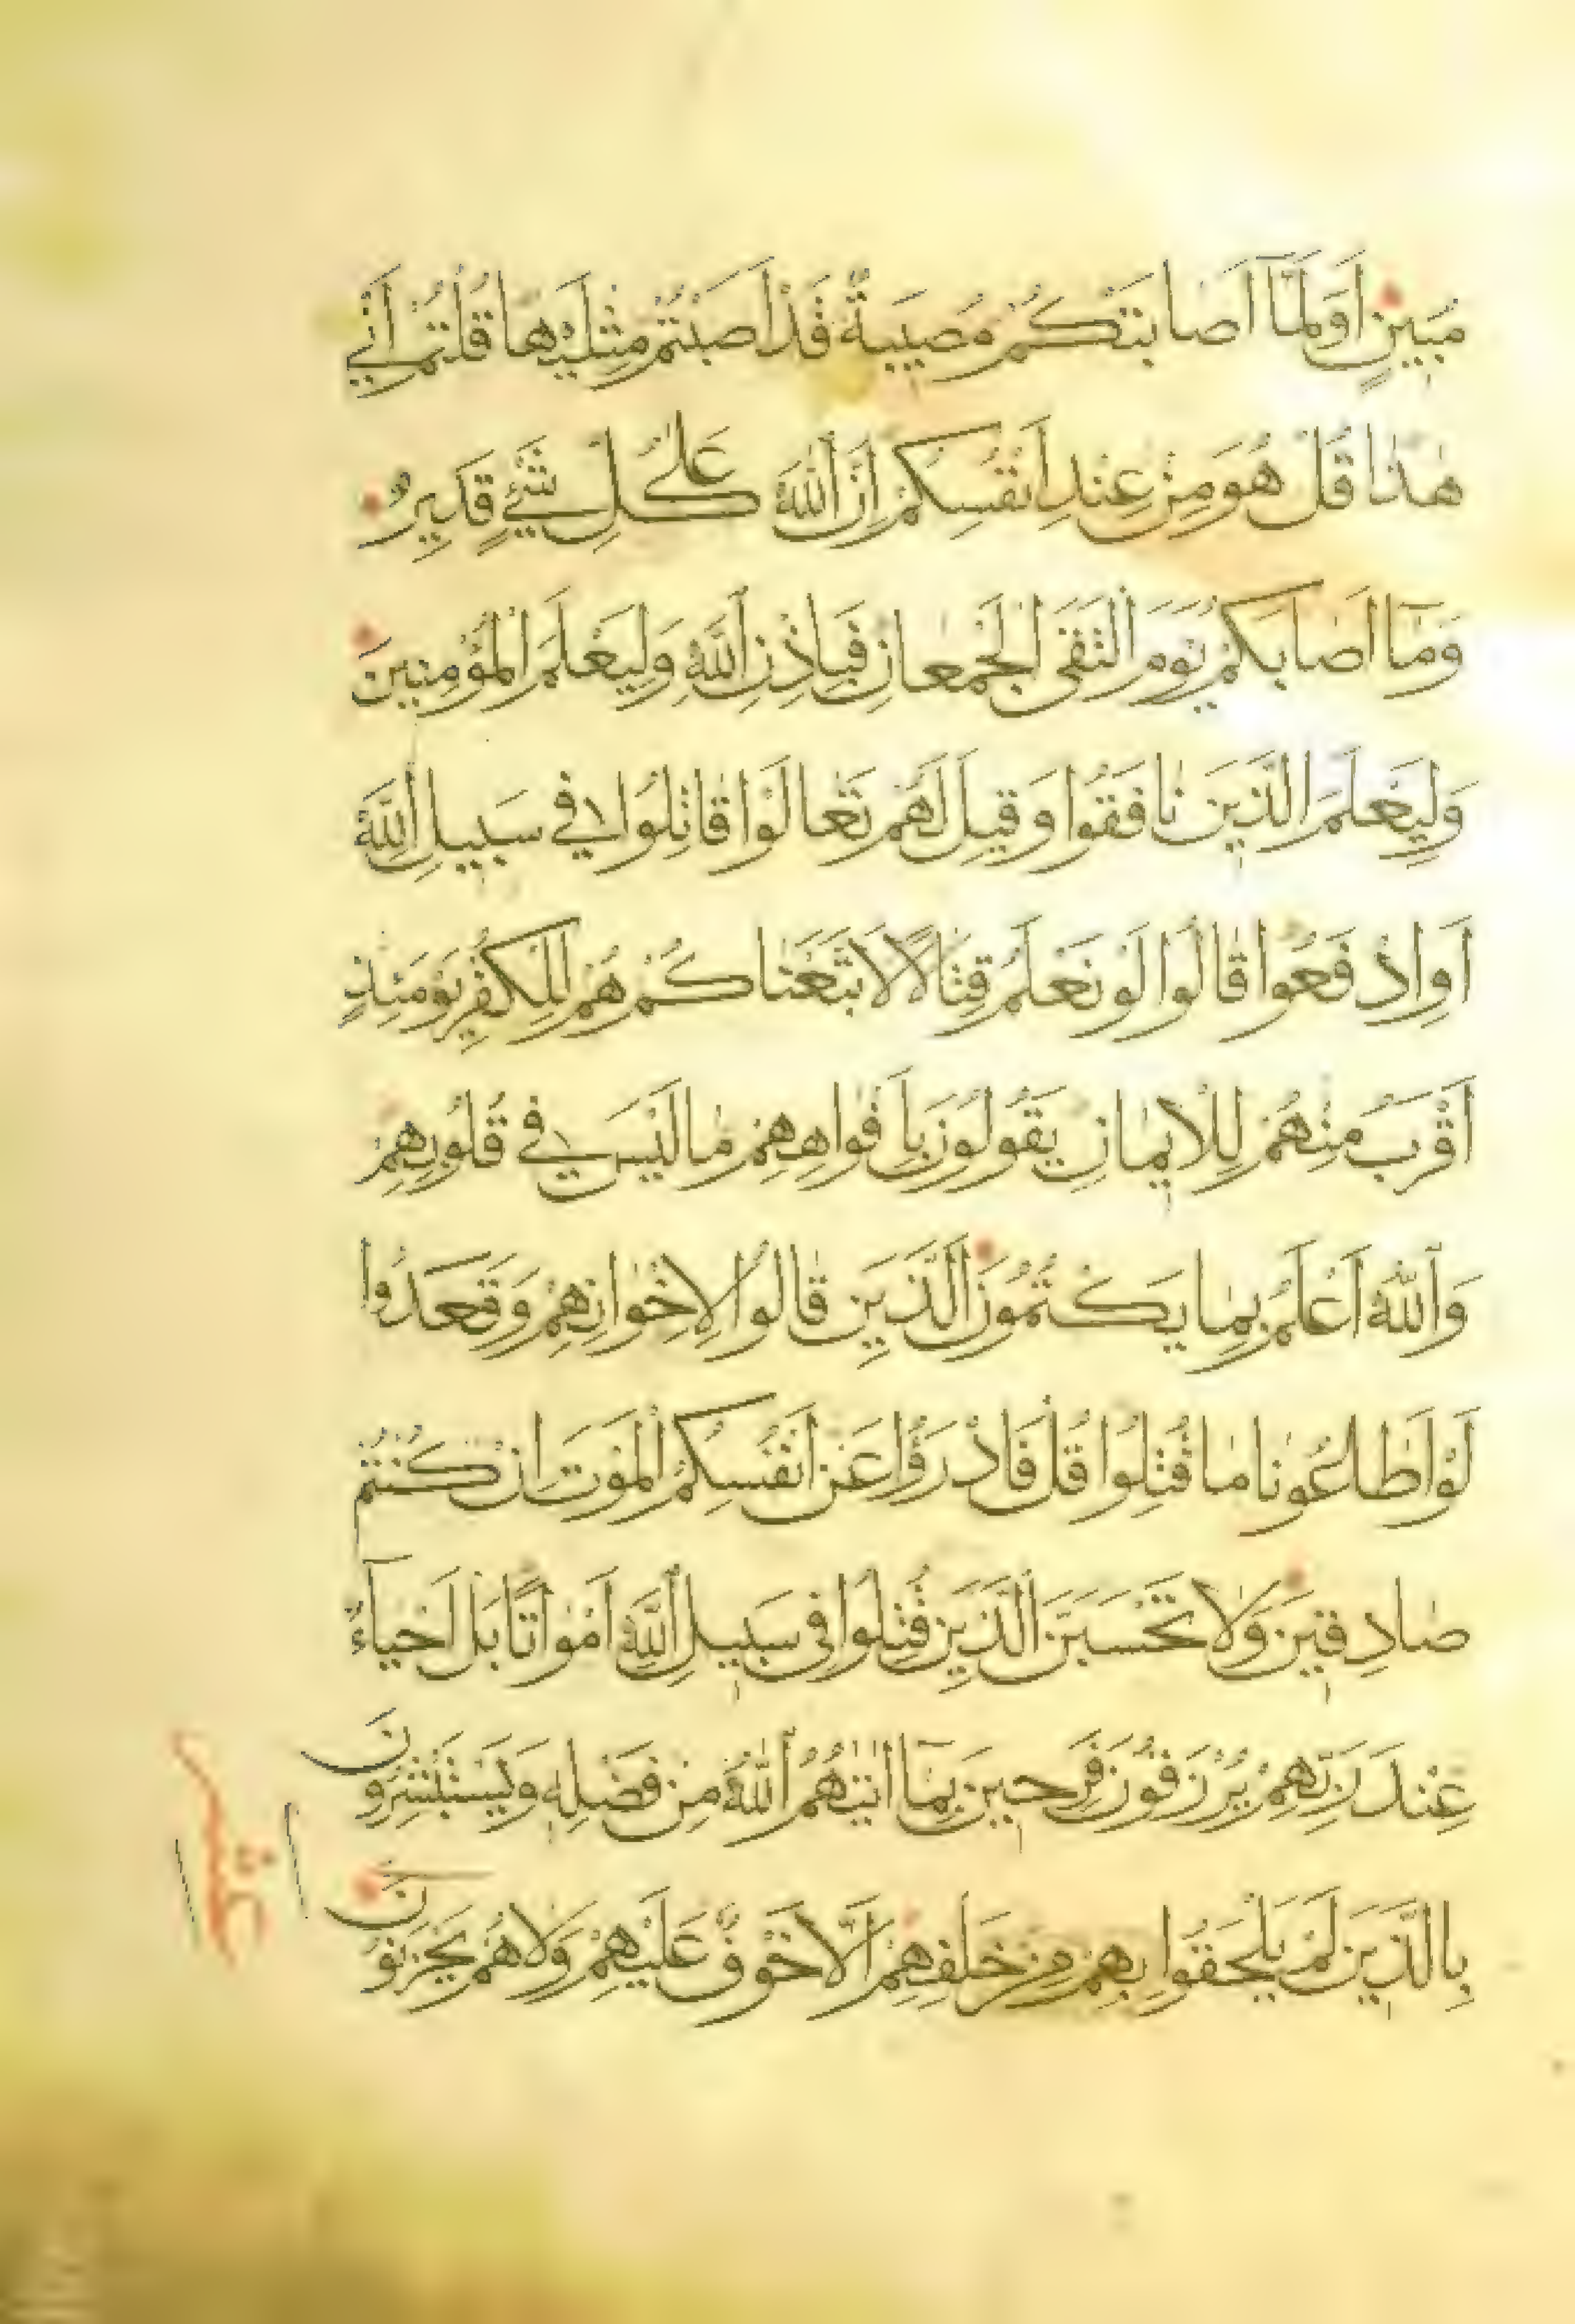 مُبِينٍ اَوَلَمَّٓا اَصَابَتْكُمْ مُصِيبَةٌ قَدْ اَصَبْتُمْ مِثْلَيْهَا قُلْتُمْ اَنّٰى
هٰذَا قُلْ هُوَ مِنْ عِنْدِ اَنْفُسِكُمْ اِنَّ اللّٰهَ عَلٰى كُلِّ شَيْءٍ قَدِيرٌ
وَمَٓا اَصَابَكُمْ يَوْمَ الْتَقَى الْجَمْعَانِ فَبِاِذْنِ اللّٰهِ وَلِيَعْلَمَ الْمُؤْمِنِينَ
وَلِيَعْلَمَ الَّذِينَ نَافَقُوا وَقِيلَ لَهُمْ تَعَالَوْا قَاتِلُوا فِي سَبِيلِ اللّٰهِ
اَوِ ادْفَعُوا قَالُوا لَوْ نَعْلَمُ قِتَالًا لَاتَّبَعْنَاكُمْ هُمْ لِلْكُفْرِ يَوْمَئِذٍ
اَقْرَبُ مِنْهُمْ لِلْاِيمَانِ يَقُولُونَ بِاَفْوَاهِهِمْ مَا لَيْسَ فِي قُلُوبِهِمْ
وَاللّٰهُ اَعْلَمُ بِمَا يَكْتُمُونَ الَّذِينَ قَالُوا لِاِخْوَانِهِمْ وَقَعَدُوا
لَوْ اَطَاعُونَا مَا قُتِلُوا قُلْ فَادْرَؤُا عَنْ اَنْفُسِكُمُ الْمَوْتَ اِنْ كُنْتُمْ
صَادِقِينَ وَلَا تَحْسَبَنَّ الَّذِينَ قُتِلُوا فِي سَبِيلِ اللّٰهِ اَمْوَاتًا بَلْ اَحْيَاءٌ
عِنْدَ رَبِّهِمْ يُرْزَقُونَ فَرِحِينَ بِمَٓا اٰتٰيهُمُ اللّٰهُ مِنْ فَضْلِهِ وَيَسْتَبْشِرُونَ
بِالَّذِينَ لَمْ يَلْحَقُوا بِهِمْ مِنْ خَلْفِهِمْ اَلَّا خَوْفٌ عَلَيْهِمْ وَلَا هُمْ يَحْزَنُونَ
عشر